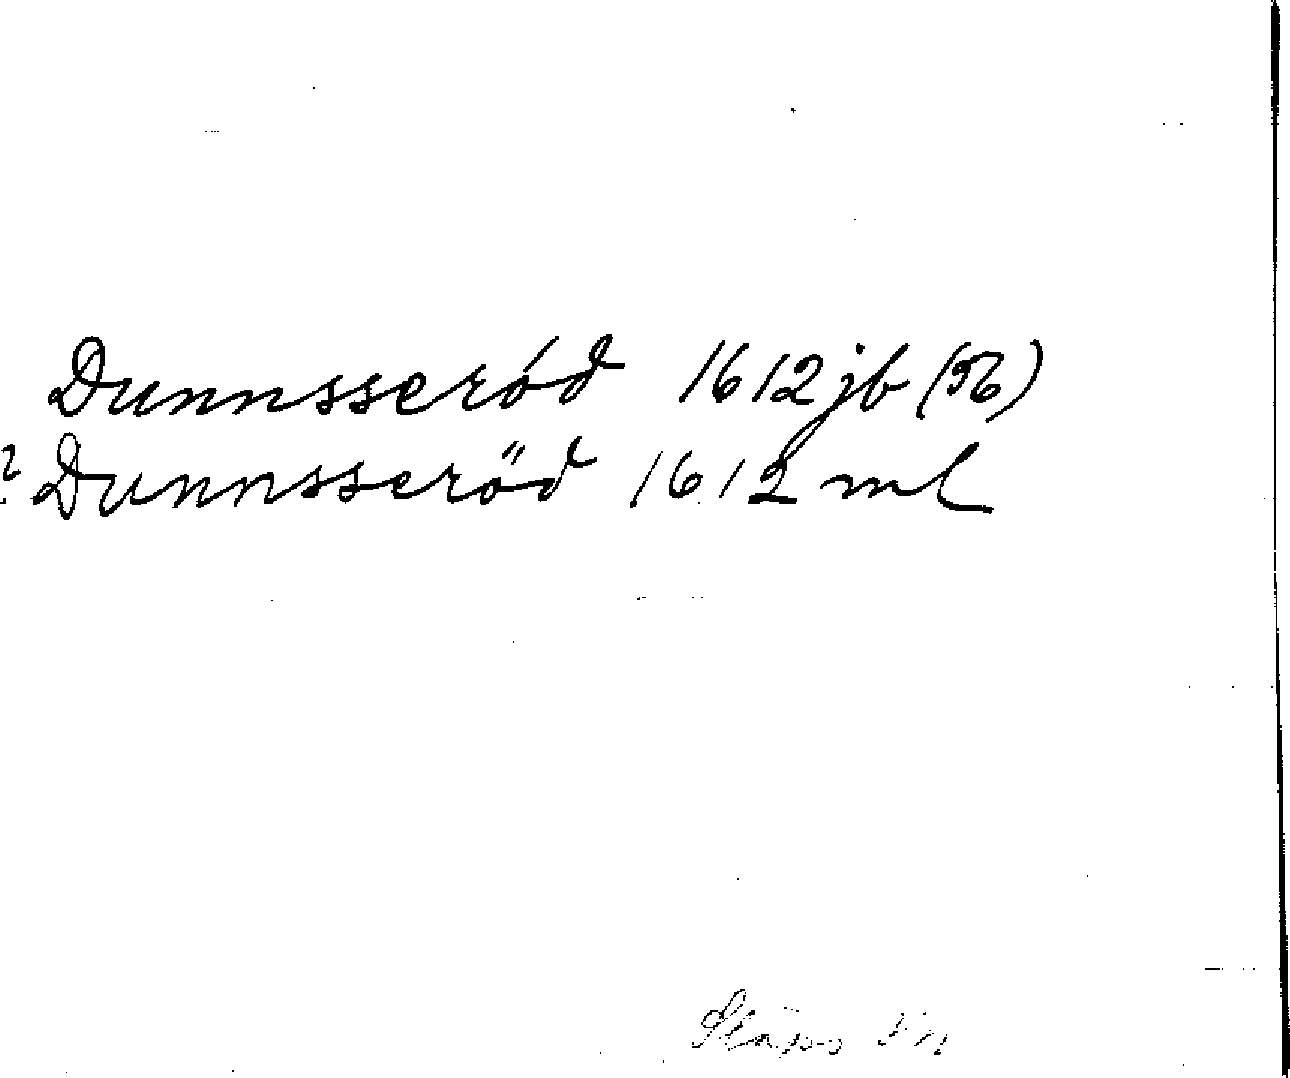 Dunnsseród 1612 jb (56)
? Dunnsseröd 1612 ml